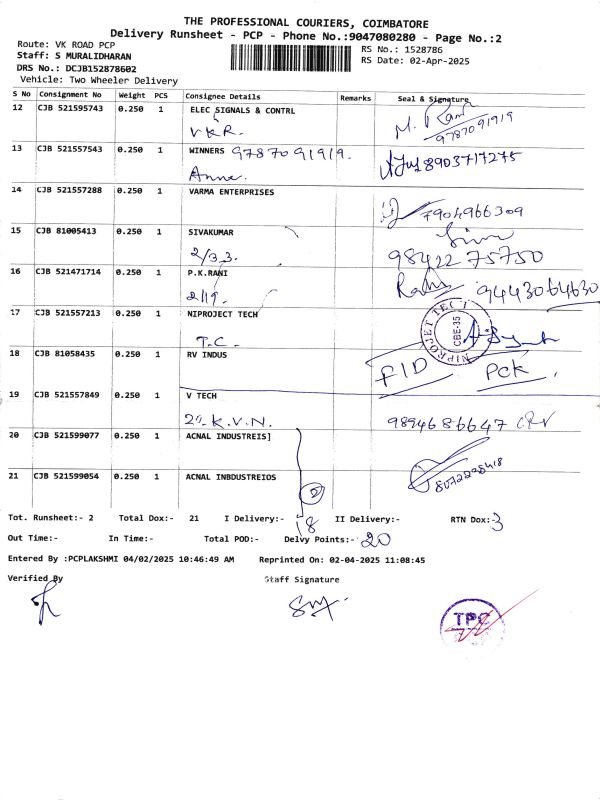 THE PROFESSIONAL COURIERS, COIMBATORE
Delivery Runsheet - PCP - Phone No.:9047080280 - Page No.:2
Route: VK ROAD PCP
Staff: S MURALIDHARAN
DRS No.: DCJB152878602
Vehicle: Two Wheeler Delivery
RS No.: 1528786
RS Date: 02-Apr-2025
S No Consignment No Weight PCS Consignee Details Remarks Seal & Signature
12 CJB 521595743 0.250 1 ELEC SIGNALS & CONTRL
VKR. 9787091919
13 CJB 521557543 0.250 1 WINNERS 9787091919. 8903717275
14 CJB 521557288 0.250 1 VARMA ENTERPRISES
7904966309
15 CJB 81005413 0.250 1 SIVAKUMAR
2/33. 9842275750
16 CJB 521471714 0.250 1 P.K.RANI
2119. Rani 9443064630
17 CJB 521557213 0.250 1 NIPROJECT TECH
T.C. NIPROJET TECT CBE-35
18 CJB 81058435 0.250 1 RV INDUS FID Pck
19 CJB 521557849 0.250 1 V TECH
K.V.N. 9894686647
20 CJB 521599077 0.250 1 ACNAL INDUSTREIS]
21 CJB 521599054 0.250 1 ACNAL INBDUSTREIOS
2
Tot. Runsheet:- 2 Total Dox:- 21 I Delivery:- 18 II Delivery:- RTN Dox:- 3
Out Time:- In Time:- Total POD:- Delvy Points:- 20
Entered By :PCPLAKSHMI 04/02/2025 10:46:49 AM Reprinted On: 02-04-2025 11:08:45
Verified By Staff Signature
TPC